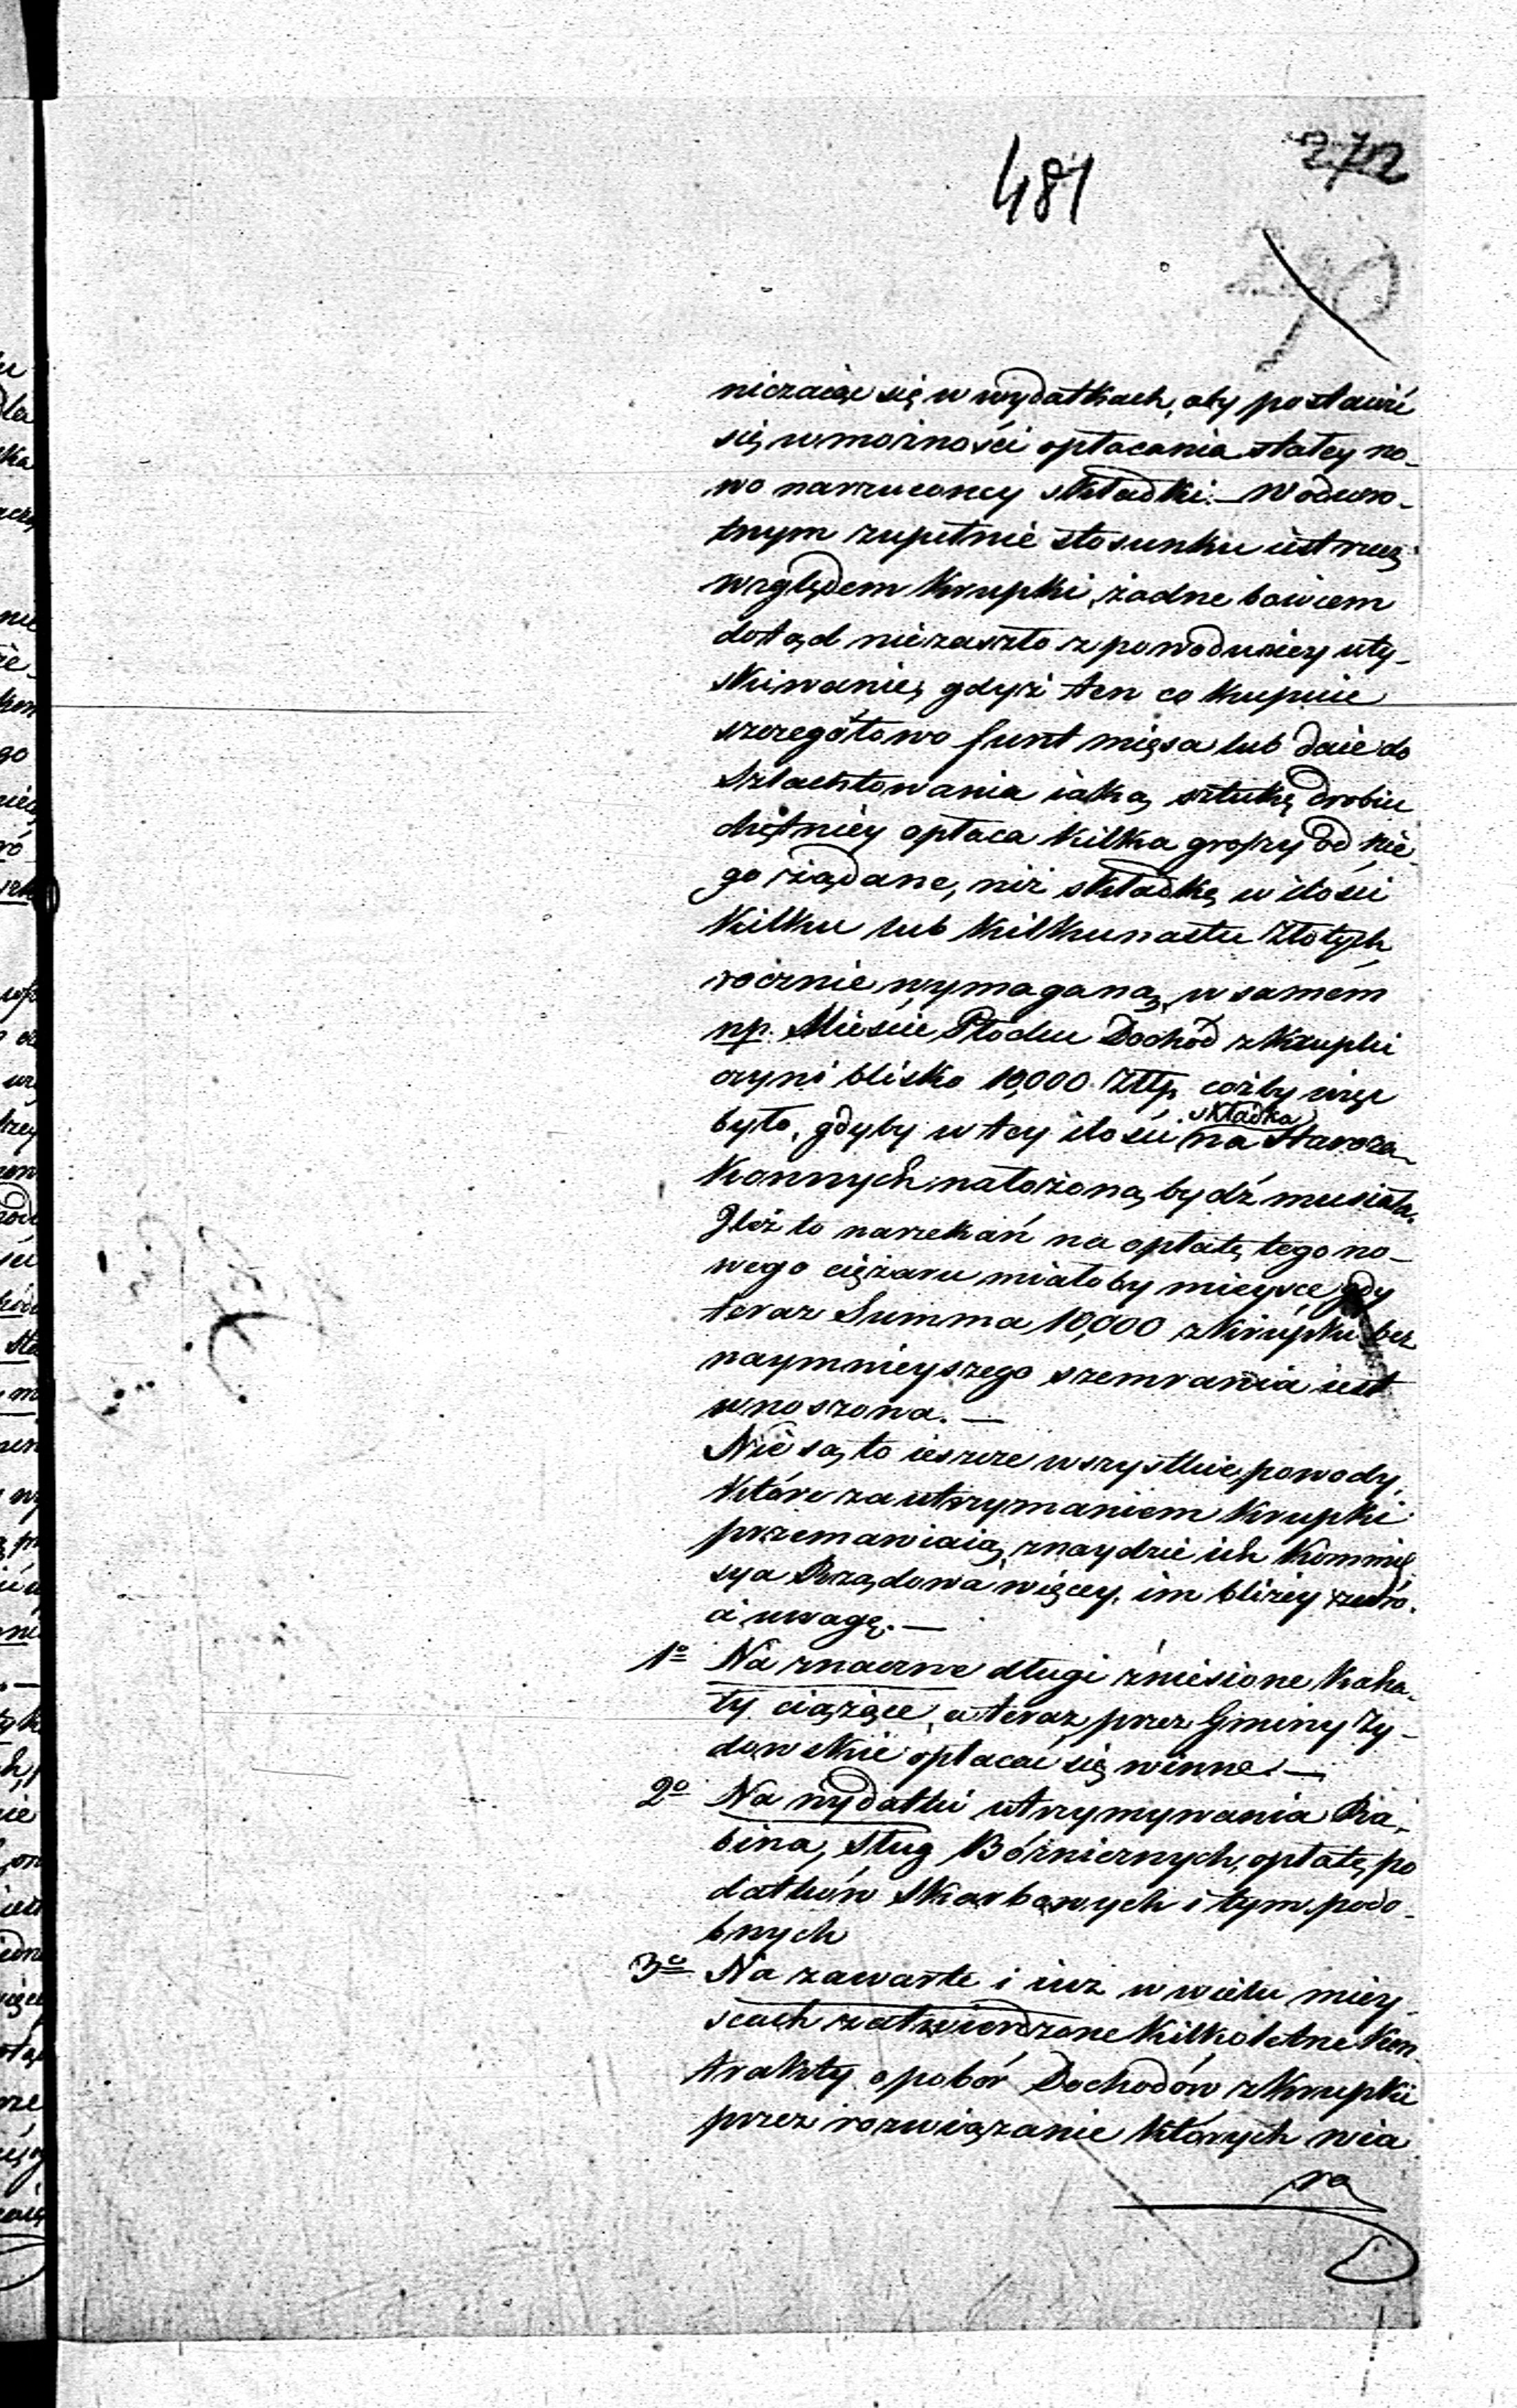 481
272
niczaiąc się w wydatkach, aby postawić
się w możności opłacania stałey no-
wo narzuconey składki. — W odwro-
tnym zupełnie stosunku iest rzecz
względem Krupki, żadne bowiem
dotąd niezaszło z powodu niey uty-
skiwanie, gdyż ten co kupuie
szczegółowo funt mięsa lub daie do
Szlachtowania iaką sztukę drobiu
chętniey opłaca kilka groszy od nie-
go żądane, niż składkę w ilości
kilku lub kilkunastu Złotych
rocznie wymaganą, w samém
np. Mieście Płocku Dochód z Krupki
czyni blisko 10,000 Złtp. cóżby więc
było, gdyby w tey ilości składka na Staroza-
konnych nałożoną bydź musiała.
Ileż to narzekań na opłatę tego no-
wego ciężaru miałoby mieysce, gdy
teraz Summa 10,000 z Krupki bez
naymnieyszego szemrania iest
wnoszona. —
Nie są to ieszcze wszystkie powody,
które za utrzymaniem Krupki
przemawiaią, znaydzie ich Kommis-
sya Rządowa więcey, im bliżey zwró-
ci uwagę. —
1º Na znaczne długi zniesione Kaha-
ły ciążące, a teraz przez Gminy Ży-
dowskie opłacać się winne. —
2º Na wydatki utrzymywania Ra-
bina, Sług Bóżniczych, opłatę po
datków Skarbowych i tym podo-
bnych
3º Na zawarte i iuż w wielu miey-
scach zatwierdzone kilkoletne Kon-
trakty o pobór Dochodów z Krupki
przez rozwiązanie których wia
ra